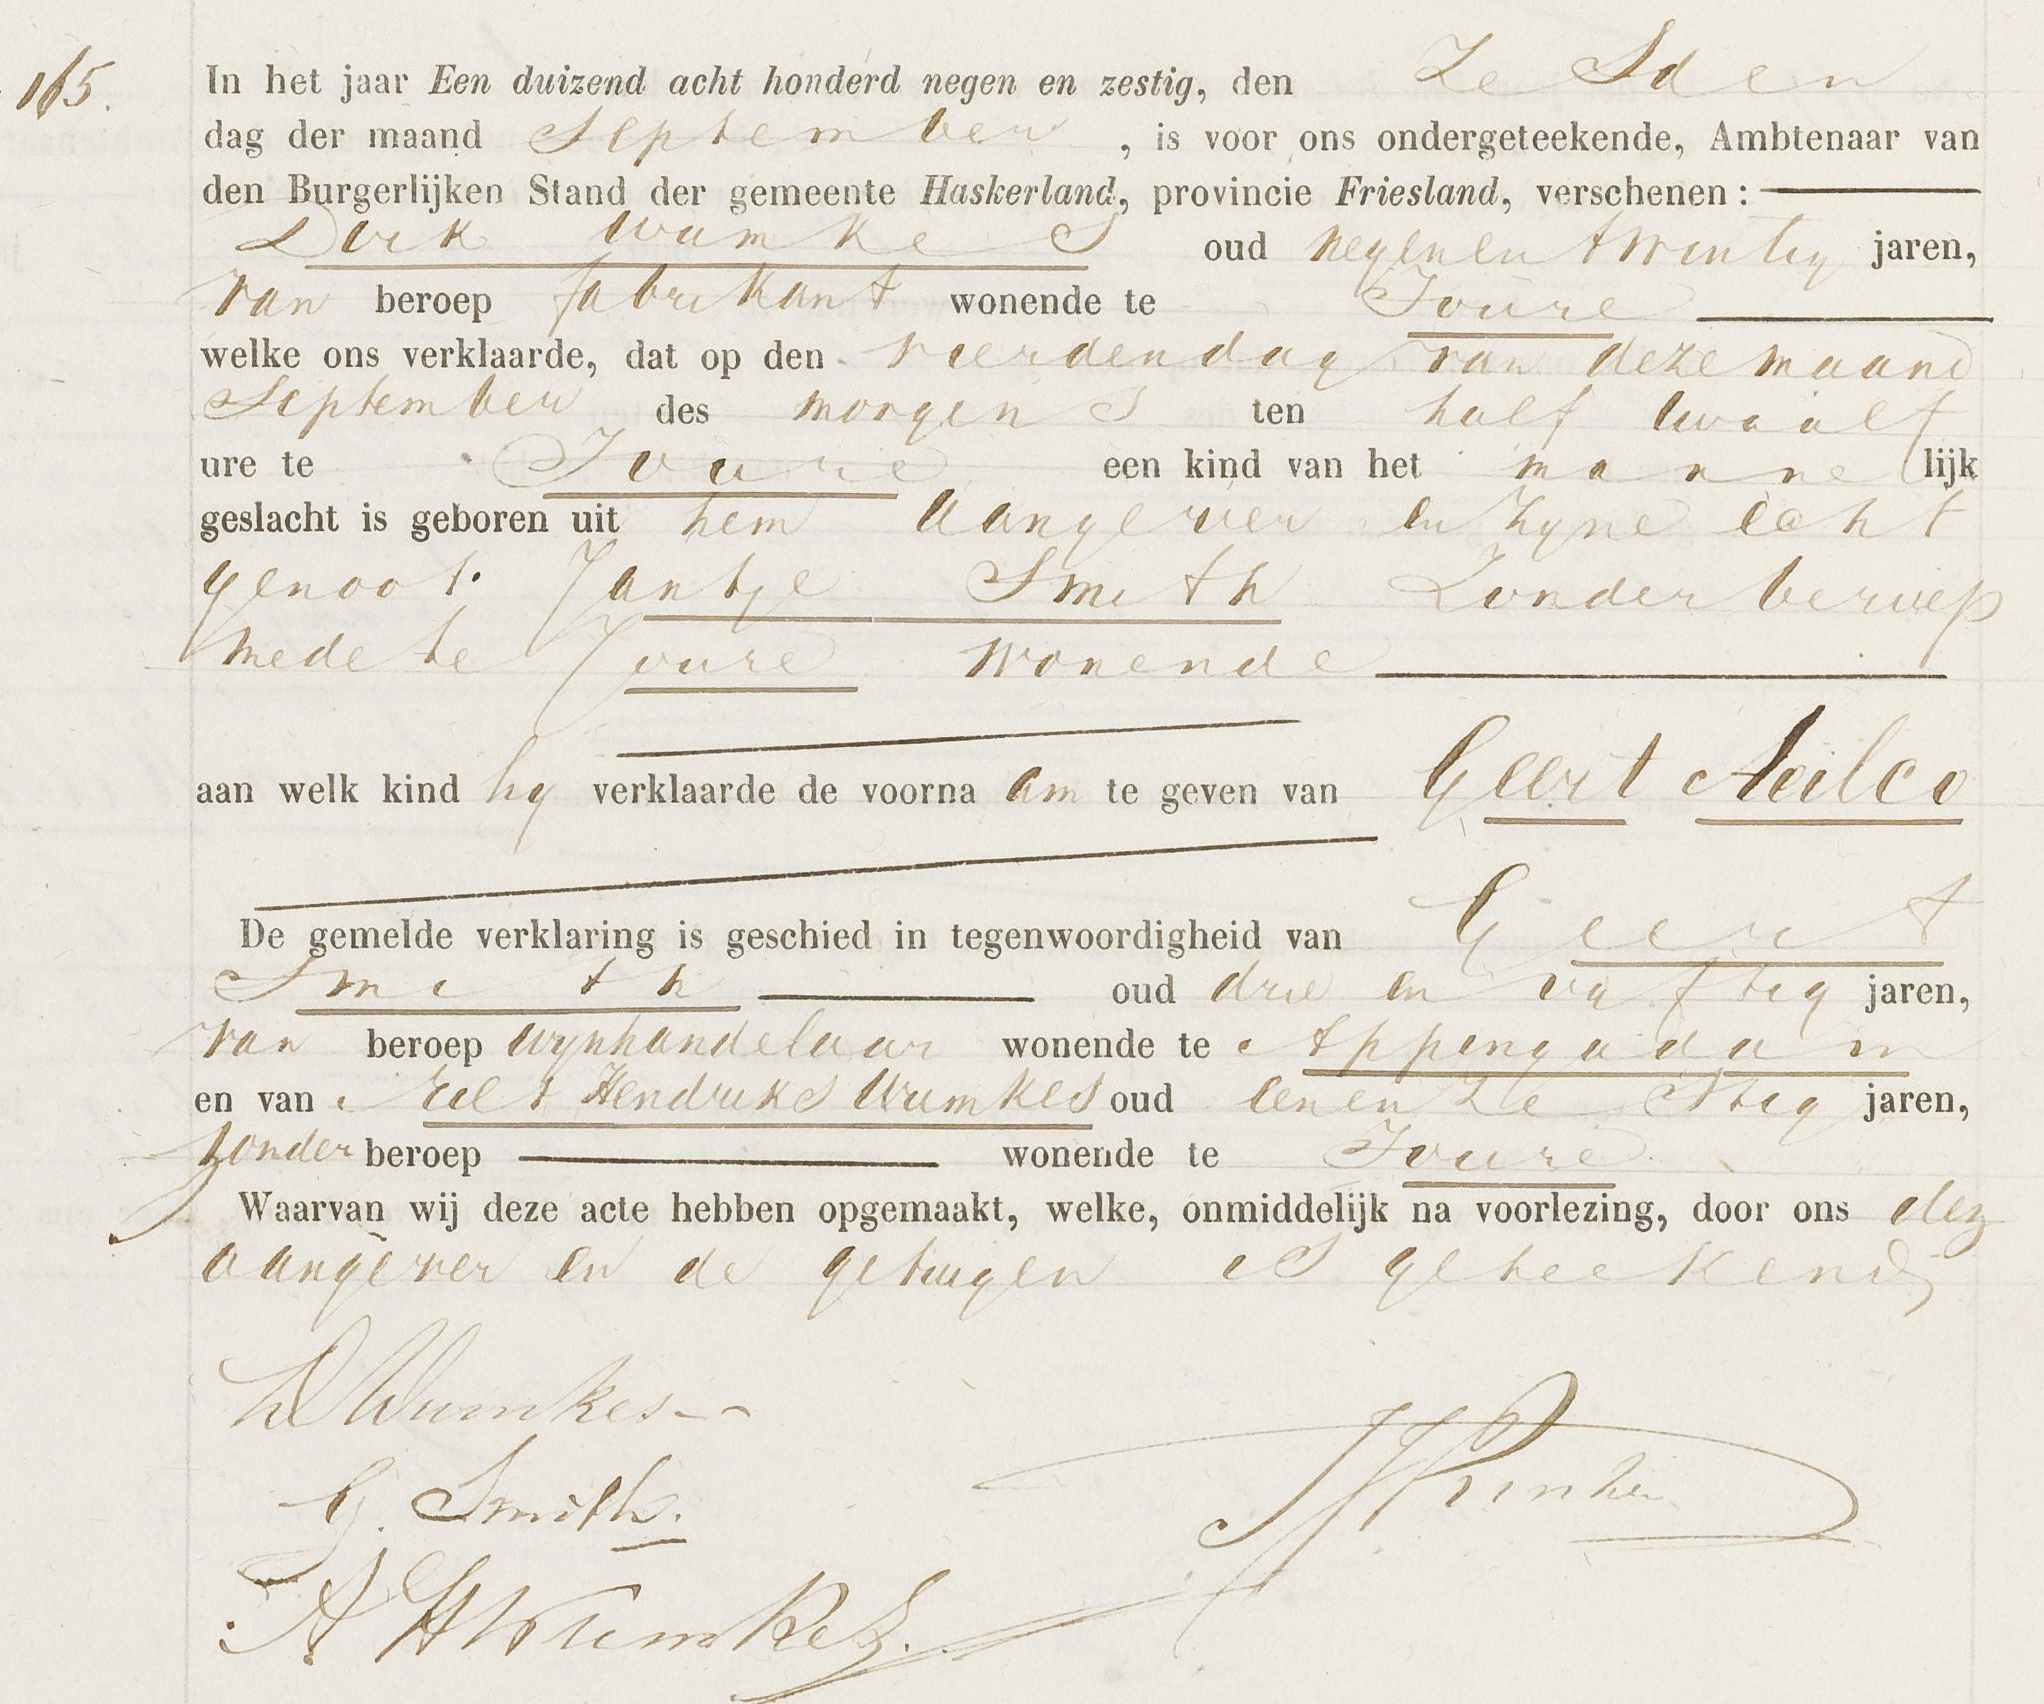 165.
In het jaar Een duizend acht honderd negen en zestig, den Zesden
dag der maand September, is voor ons ondergeteekende, Ambtenaar van
den Burgerlijken Stand der gemeente Haskerland, provincie Friesland, verschenen:
Dirk Wumkes oud negenentwintig jaren,
van beroep fabrikant wonende te Joure
welke ons verklaarde, dat op den vierden dag van deze maand
September des morgens ten half twaalf
ure te Joure een kind van het mannelijk
geslacht is geboren uit hem aangever en zyne echt
genoot Jantje Smith zonder beroep
mede te Joure wonende
aan welk kind hy verklaarde de voornaam te geven van Geert Aeilco
De gemelde verklaring is geschied in tegenwoordigheid van Geert
Smith oud drie en vyftig jaren,
van beroep wynhandelaar wonende te Appingadam
en van Hendriks Wumkes oud eenenzestig jaren,
zonder beroep wonende te Joure
Waarvan wij deze acte hebben opgemaakt, welke, onmiddelijk na voorlezing, door ons dez
aangever en de getuigen is geteekend
D Wumkes
G. Smith.
A H Wumkes.